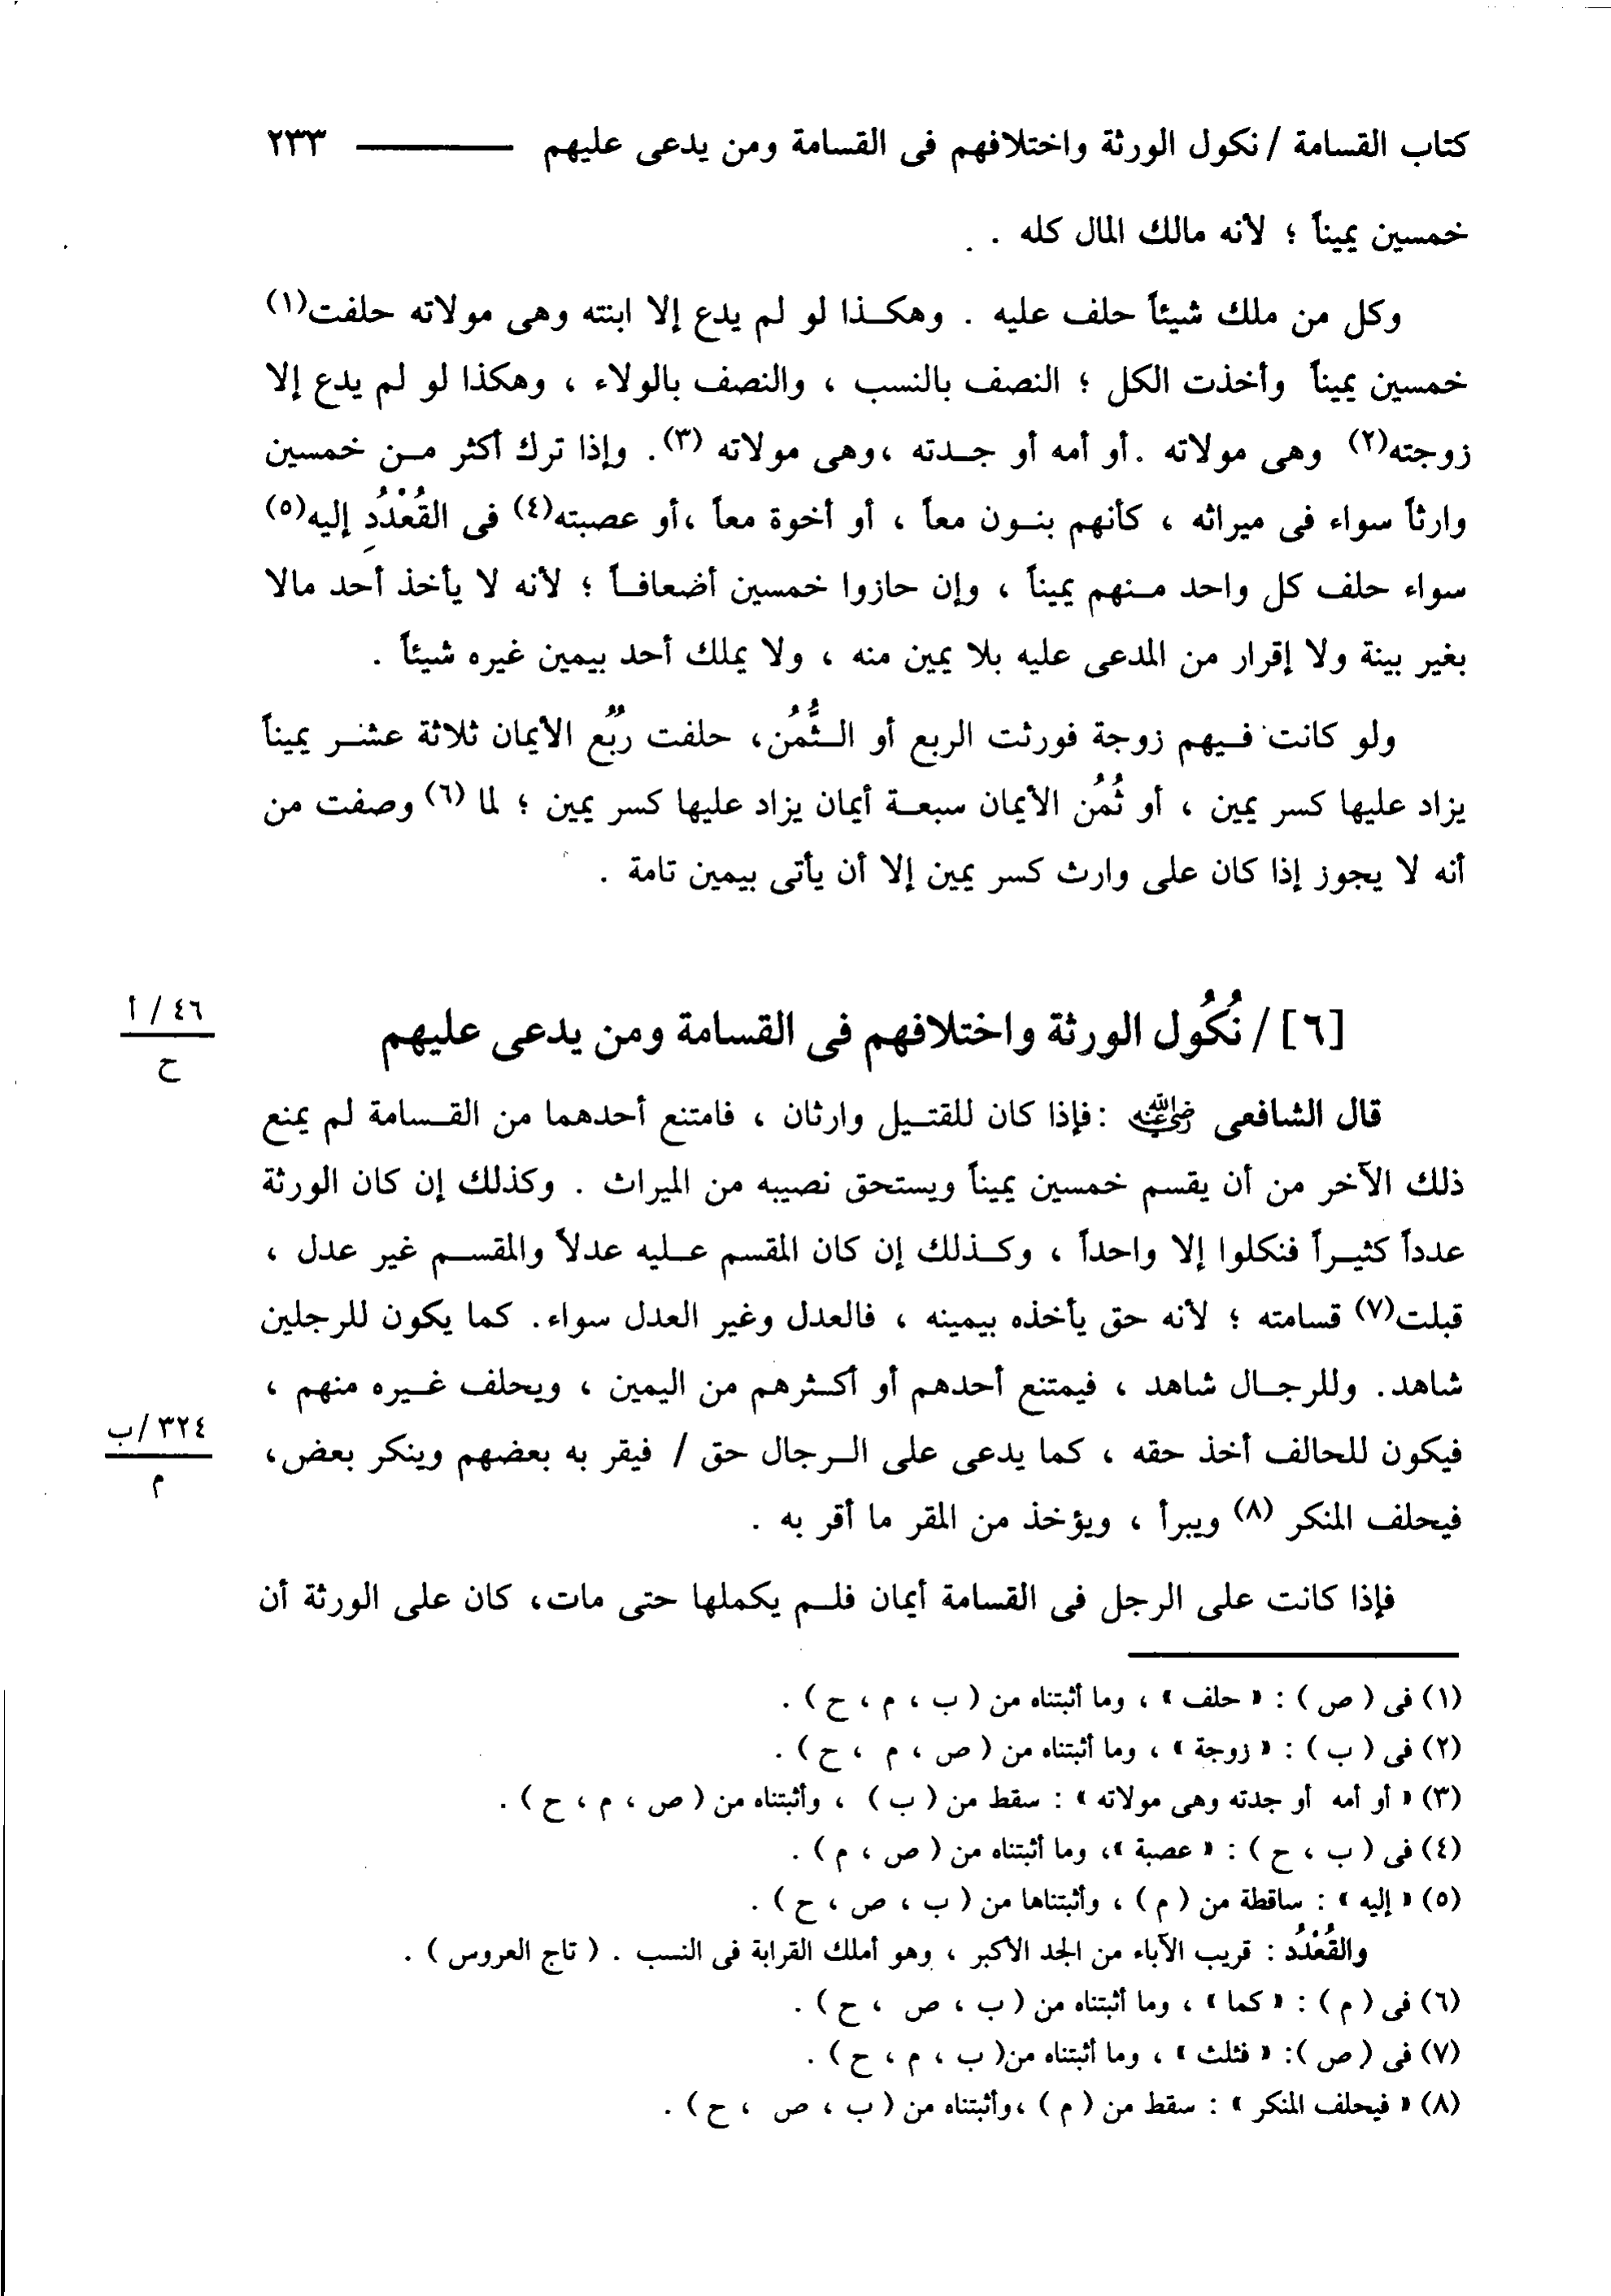 كتاب القسامة / نكول الورثة واختلافهم فى القسامة ومن يدعى عليهم ——— ٢٣٣
خمسين يميناً ؛ لأنه مالك المال كله .
وكل من ملك شيئاً حلف عليه . وهكذا لو لم يدع إلا ابنته وهى مولاته حلفت(١)
خمسين يميناً وأخذت الكل ؛ النصف بالنسب ، والنصف بالولاء ، وهكذا لو لم يدع إلا
زوجته(٢) وهى مولاته . أو أمه أو جدته ، وهى مولاته (٣). وإذا ترك أكثر من خمسين
وارثاً سواء فى ميراثه ، كأنهم بنون معاً ، أو أخوة معاً ،أو عصبته(٤) فى القُعْدُدِ إليه(٥)
سواء حلف كل واحد منهم يميناً ، وإن حازوا خمسين أضعافاً ؛ لأنه لا يأخذ أحد مالا
بغير بينة ولا إقرار من المدعى عليه بلا يمين منه ، ولا يملك أحد بيمين غيره شيئاً .
ولو كانت فيهم زوجة فورثت الربع أو الثُّمُن، حلفت رُبُع الأيمان ثلاثة عشر يميناً
يزاد عليها كسر يمين ، أو ثُمُن الأيمان سبعة أيمان يزاد عليها كسر يمين ؛ لما (٦) وصفت من
أنه لا يجوز إذا كان على وارث كسر يمين إلا أن يأتى بيمين تامة .
[٦] / نُكُول الورثة واختلافهم فى القسامة ومن يدعى عليهم
٤٦ / أ
ح
قال الشافعى رضي الله عنه : فإذا كان للقتيل وارثان ، فامتنع أحدهما من القسامة لم يمنع
ذلك الآخر من أن يقسم خمسين يميناً ويستحق نصيبه من الميراث . وكذلك إن كان الورثة
عدداً كثيراً فنكلوا إلا واحداً ، وكذلك إن كان المقسم عليه عدلاً والمقسم غير عدل ،
قبلت(٧) قسامته ؛ لأنه حق يأخذه بيمينه ، فالعدل وغير العدل سواء. كما يكون للرجلين
شاهد. وللرجال شاهد ، فيمتنع أحدهم أو أكثرهم من اليمين ، ويحلف غيره منهم ،
فيكون للحالف أخذ حقه ، كما يدعى على الرجال حق / فيقر به بعضهم وينكر بعض،
٣٢٤/ب
م
فيحلف المنكر (٨) ويبرأ ، ويؤخذ من المقر ما أقر به .
فإذا كانت على الرجل فى القسامة أيمان فلم يكملها حتى مات، كان على الورثة أن
(١) فى ( ص ) : « حلف » ، وما أثبتناه من ( ب ، م ، ح ) .
(٢) فى ( ب ) : « زوجة » ، وما أثبتناه من ( ص ، م ، ح ) .
(٣) « أو أمه أو جدته وهى مولاته » : سقط من ( ب ) ، وأثبتناه من ( ص ، م ، ح ) .
(٤) فى ( ب ، ح ) : « عصبة »، وما أثبتناه من ( ص ، م ) .
(٥) « إليه » : ساقطة من ( م ) ، وأثبتناها من ( ب ، ص ، ح ) .
والقُعْدُد : قريب الآباء من الجد الأكبر ، وهو أملك القرابة فى النسب . ( تاج العروس ) .
(٦) فى ( م ) : « كما » ، وما أثبتناه من ( ب ، ص ، ح ) .
(٧) فى ( ص ): « فثلث » ، وما أثبتناه من( ب ، م ، ح ) .
(٨) « فيحلف المنكر » : سقط من ( م ) ،وأثبتناه من ( ب ، ص ، ح ) .